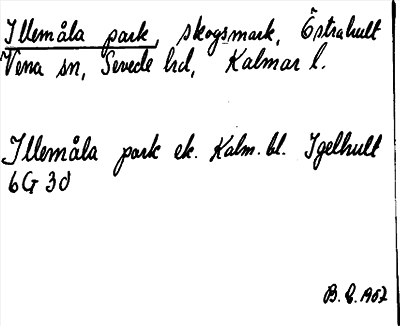 Illemåla park, skogsmark, Östrahult
Vena sn, Sevede hd, Kalmar l.
Illemåla park ek. Kalm. bl. Igelhult
6G 3d
B. E. 1967